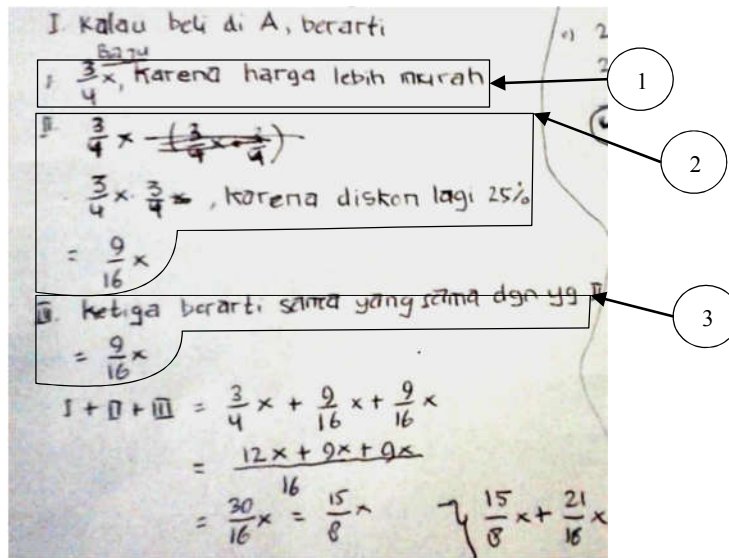 I. Kalau beli di A, berarti
Baju
I. 3/4 x, karena harga lebih murah
1
II. 3/4 x (3/4 x - 3/4)
2
3/4 x 3/4 x, karena diskon lagi 25%
= 9/16 x
III. Ketiga berarti sama yang sama dgn yg II
3
= 9/16 x
I + II + III = 3/4 x + 9/16 x + 9/16 x
= 12x + 9x + 9x / 16
= 30/16 x = 15/8 x
15/8 x + 21/16 x
c) 2
2